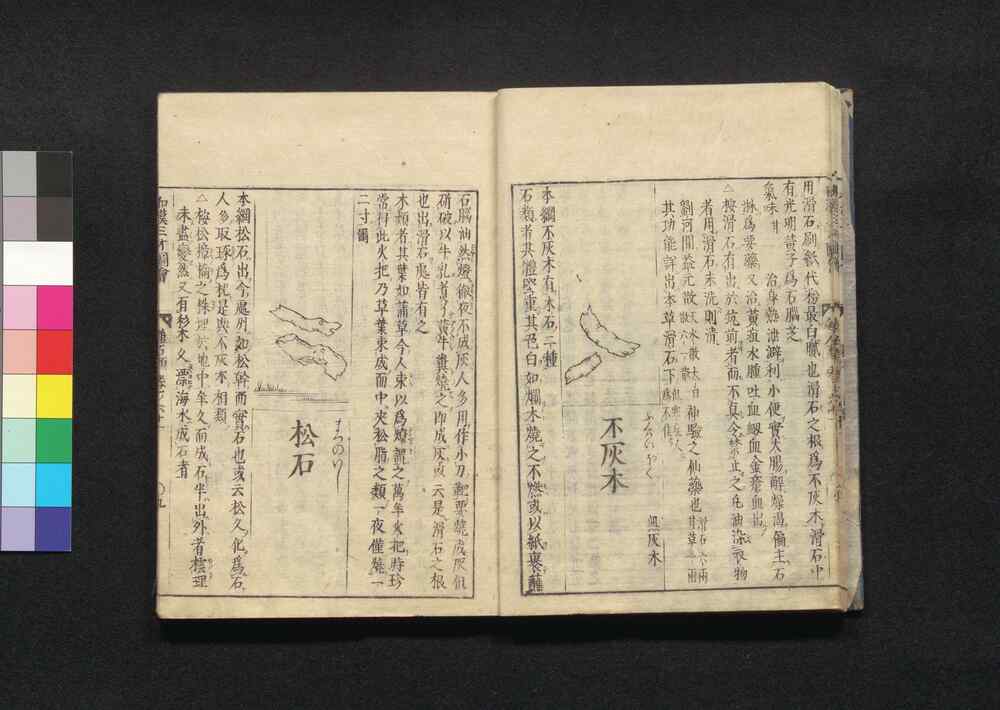 用滑石刷紙代粉最白膩也滑石之根爲不灰木滑石中
有光明黄子爲石腦芝
氣味 甘 治身熱泄澼利小便實大腸解燥渴偏主石
淋爲要藥又治黄疸水腫吐血衂血金瘡血出
△按滑石有出於筑前者而不真今禁止之毛油染衣物
者用滑石末洗則消
劉河間益元散 神驗之仙藥也
其功能詳出本草滑石下
不灰木
無灰木
本綱不灰木有木石二種
石類者其體堅重其色白如爛木燒之不燃或以紙裹蘸
石腦油然燈徹夜不成灰人多用作小刀靶要燒成灰但
斫破以牛乳煮了黄牛糞燒之即成灰或云是滑石之根
也出滑石處皆有之
木類者其葉如蒲草今人束以爲燎謂之萬年火把時珍
常得此火把乃草葉束成而中夾松脂之類一夜僅燒一
二寸爾
松石
本綱松石出今處州如松幹而實石也或云松久化爲石
人多取琢爲枕是與不灰木相類
△按松樟楠之株埋於地中年久而成石半出外者檀理
未盡變然又有杉木久漂海水成石者
和漢三才圖會